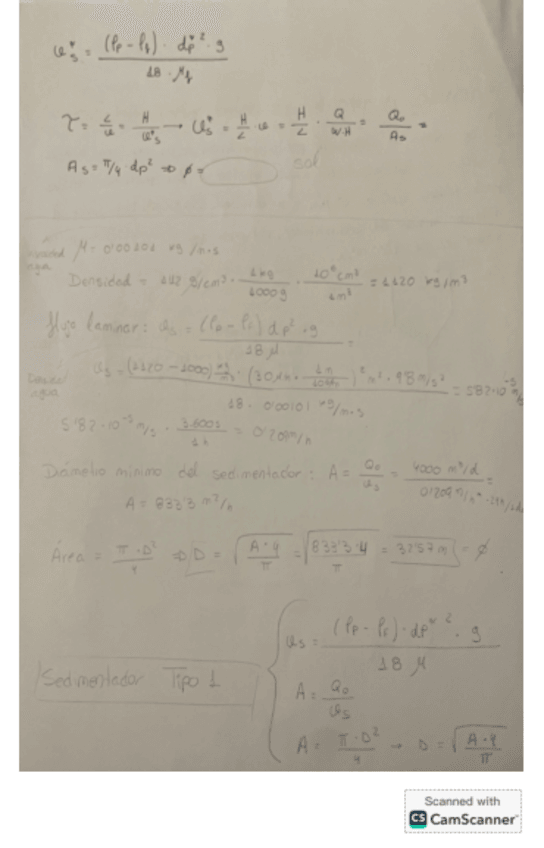 υs* = (ρp - ρf) · dp*² · g / 18 · μf
τ = L/υ = H/υs* → υs* = H/L · υ = H/L · Q/W·H = Q₀/As =
As = π/4 dp² ⇒ ø =
sol
agua
μ = 0'00101 kg/m·s
Densidad = 1'12 g/cm³ · 1 kg/1000 g · 10⁶ cm³/1 m³ = 1120 kg/m³
flujo laminar: υs = (ρp - ρf) dp² · g / 18 μ =
agua
υs = (1120 - 1000) kg/m³ · (30 μm · 1 m/10⁶ μm)² m² · 9'8 m/s² / 18 · 0'00101 kg/m·s = 5'82·10⁻⁵ m/s
5'82·10⁻⁵ m/s · 3600 s/1 h = 0'209 m/h
Diámetro mínimo del sedimentador: A = Q₀/υs = 4000 m³/d =
A = 833'3 m²/h
Área = π·D²/4 ⇒ D = √(A·4/π) = √(833'3·4/π) = 32'57 m = ø
υs = (ρp - ρf) · dp*² · g / 18 μ
Sedimentador Tipo 1
A = Q₀/υs
A = π·D²/4 → D = √(A·4/π)
Scanned with
CS CamScanner